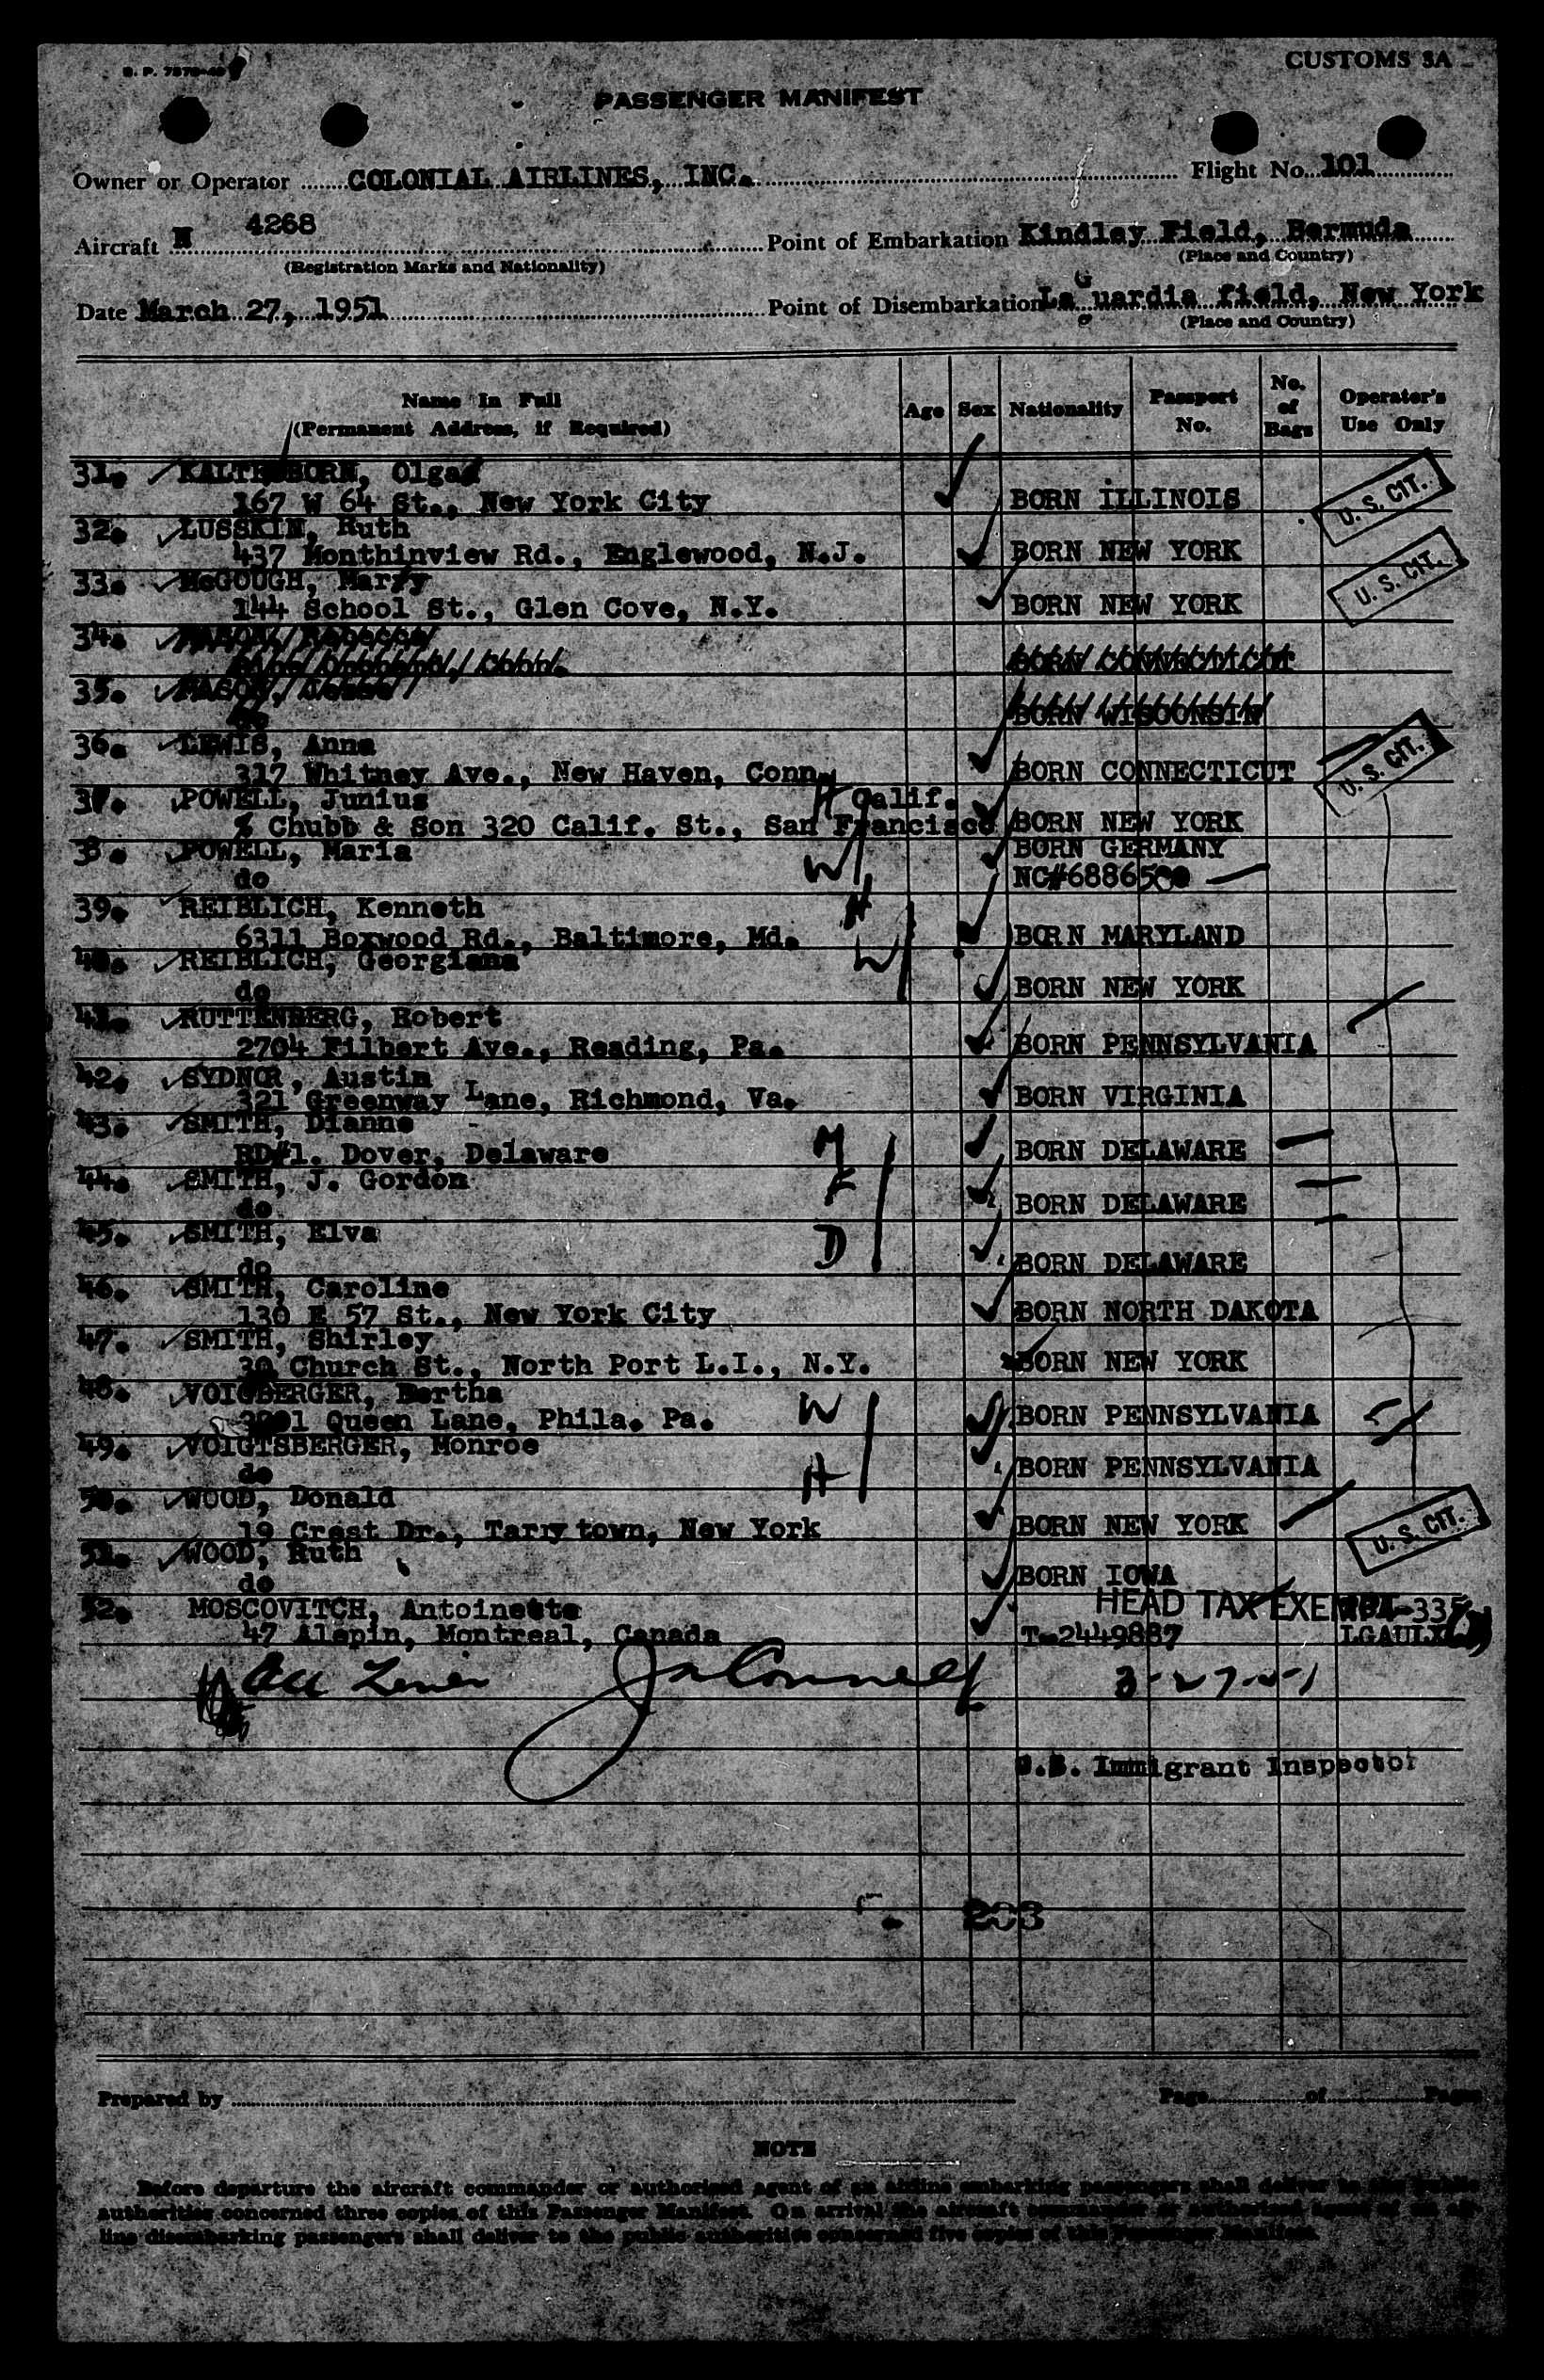 CUSTOMS 3A
PASSENGER MANIFEST
Owner or Operator COLONIAL AIRLINES, INC. Flight No. 101
Aircraft N 4268 Point of Embarkation Kindley Field, Bermuda
(Registration Marks and Nationality) (Place and Country)
Date March 27, 1951 Point of Disembarkation LaGuardia field, New York
(Place and Country)
Name In Full Age Sex Nationality Passport No. No. of Bags Operator's Use Only
(Permanent Address, if Required)
31. KALTENBORN, Olga
167 W 64 St., New York City BORN ILLINOIS U. S. CIT.
32. LUSSKIN, Ruth
437 Monthinview Rd., Englewood, N.J. BORN NEW YORK
33. McGOUGH, Mary U. S. CIT.
144 School St., Glen Cove, N.Y. BORN NEW YORK
34. MASON,
Conn. BORN CONNECTICUT
35. MASON,
BORN WISCONSIN
36. LEWIS, Anna
317 Whitney Ave., New Haven, Conn. BORN CONNECTICUT U. S. CIT.
37. POWELL, Junius H Calif.
% Chubb & Son 320 Calif. St., San Francisco BORN NEW YORK
38. POWELL, Maria W BORN GERMANY
do NC#6886500
39. REIBLICH, Kenneth H
6311 Boxwood Rd., Baltimore, Md. BORN MARYLAND
40. REIBLICH, Georgiana W
do BORN NEW YORK
41. RUTTENBERG, Robert
2704 Filbert Ave., Reading, Pa. BORN PENNSYLVANIA
42. SYDNOR, Austin
321 Greenway Lane, Richmond, Va. BORN VIRGINIA
43. SMITH, Dianne
RD#1. Dover, Delaware M BORN DELAWARE
44. SMITH, J. Gordon F
do BORN DELAWARE
45. SMITH, Elva D
do BORN DELAWARE
46. SMITH, Caroline
130 E 57 St., New York City BORN NORTH DAKOTA
47. SMITH, Shirley
30 Church St., North Port L.I., N.Y. BORN NEW YORK
48. VOIGSBERGER, Bertha W
Queen Lane, Phila. Pa. BORN PENNSYLVANIA
49. VOIGTSBERGER, Monroe
do H BORN PENNSYLVANIA
50. WOOD, Donald
19 Crest Dr., Tarrytown, New York BORN NEW YORK U. S. CIT.
51. WOOD, Ruth
do BORN IOWA
52. MOSCOVITCH, Antoinette HEAD TAX EXEMPT
47 Alepin, Montreal, Canada T-2449887
3-27-51
U.S. Immigrant Inspector
203
Prepared by Page of Pages
NOTE
Before departure the aircraft commander or authorized agent of an airline embarking passengers shall deliver to the public
authorities concerned three copies of this Passenger Manifest. On arrival the aircraft commander or authorized agent of an air-
line disembarking passengers shall deliver to the public authorities concerned five copies of this Passenger Manifest.